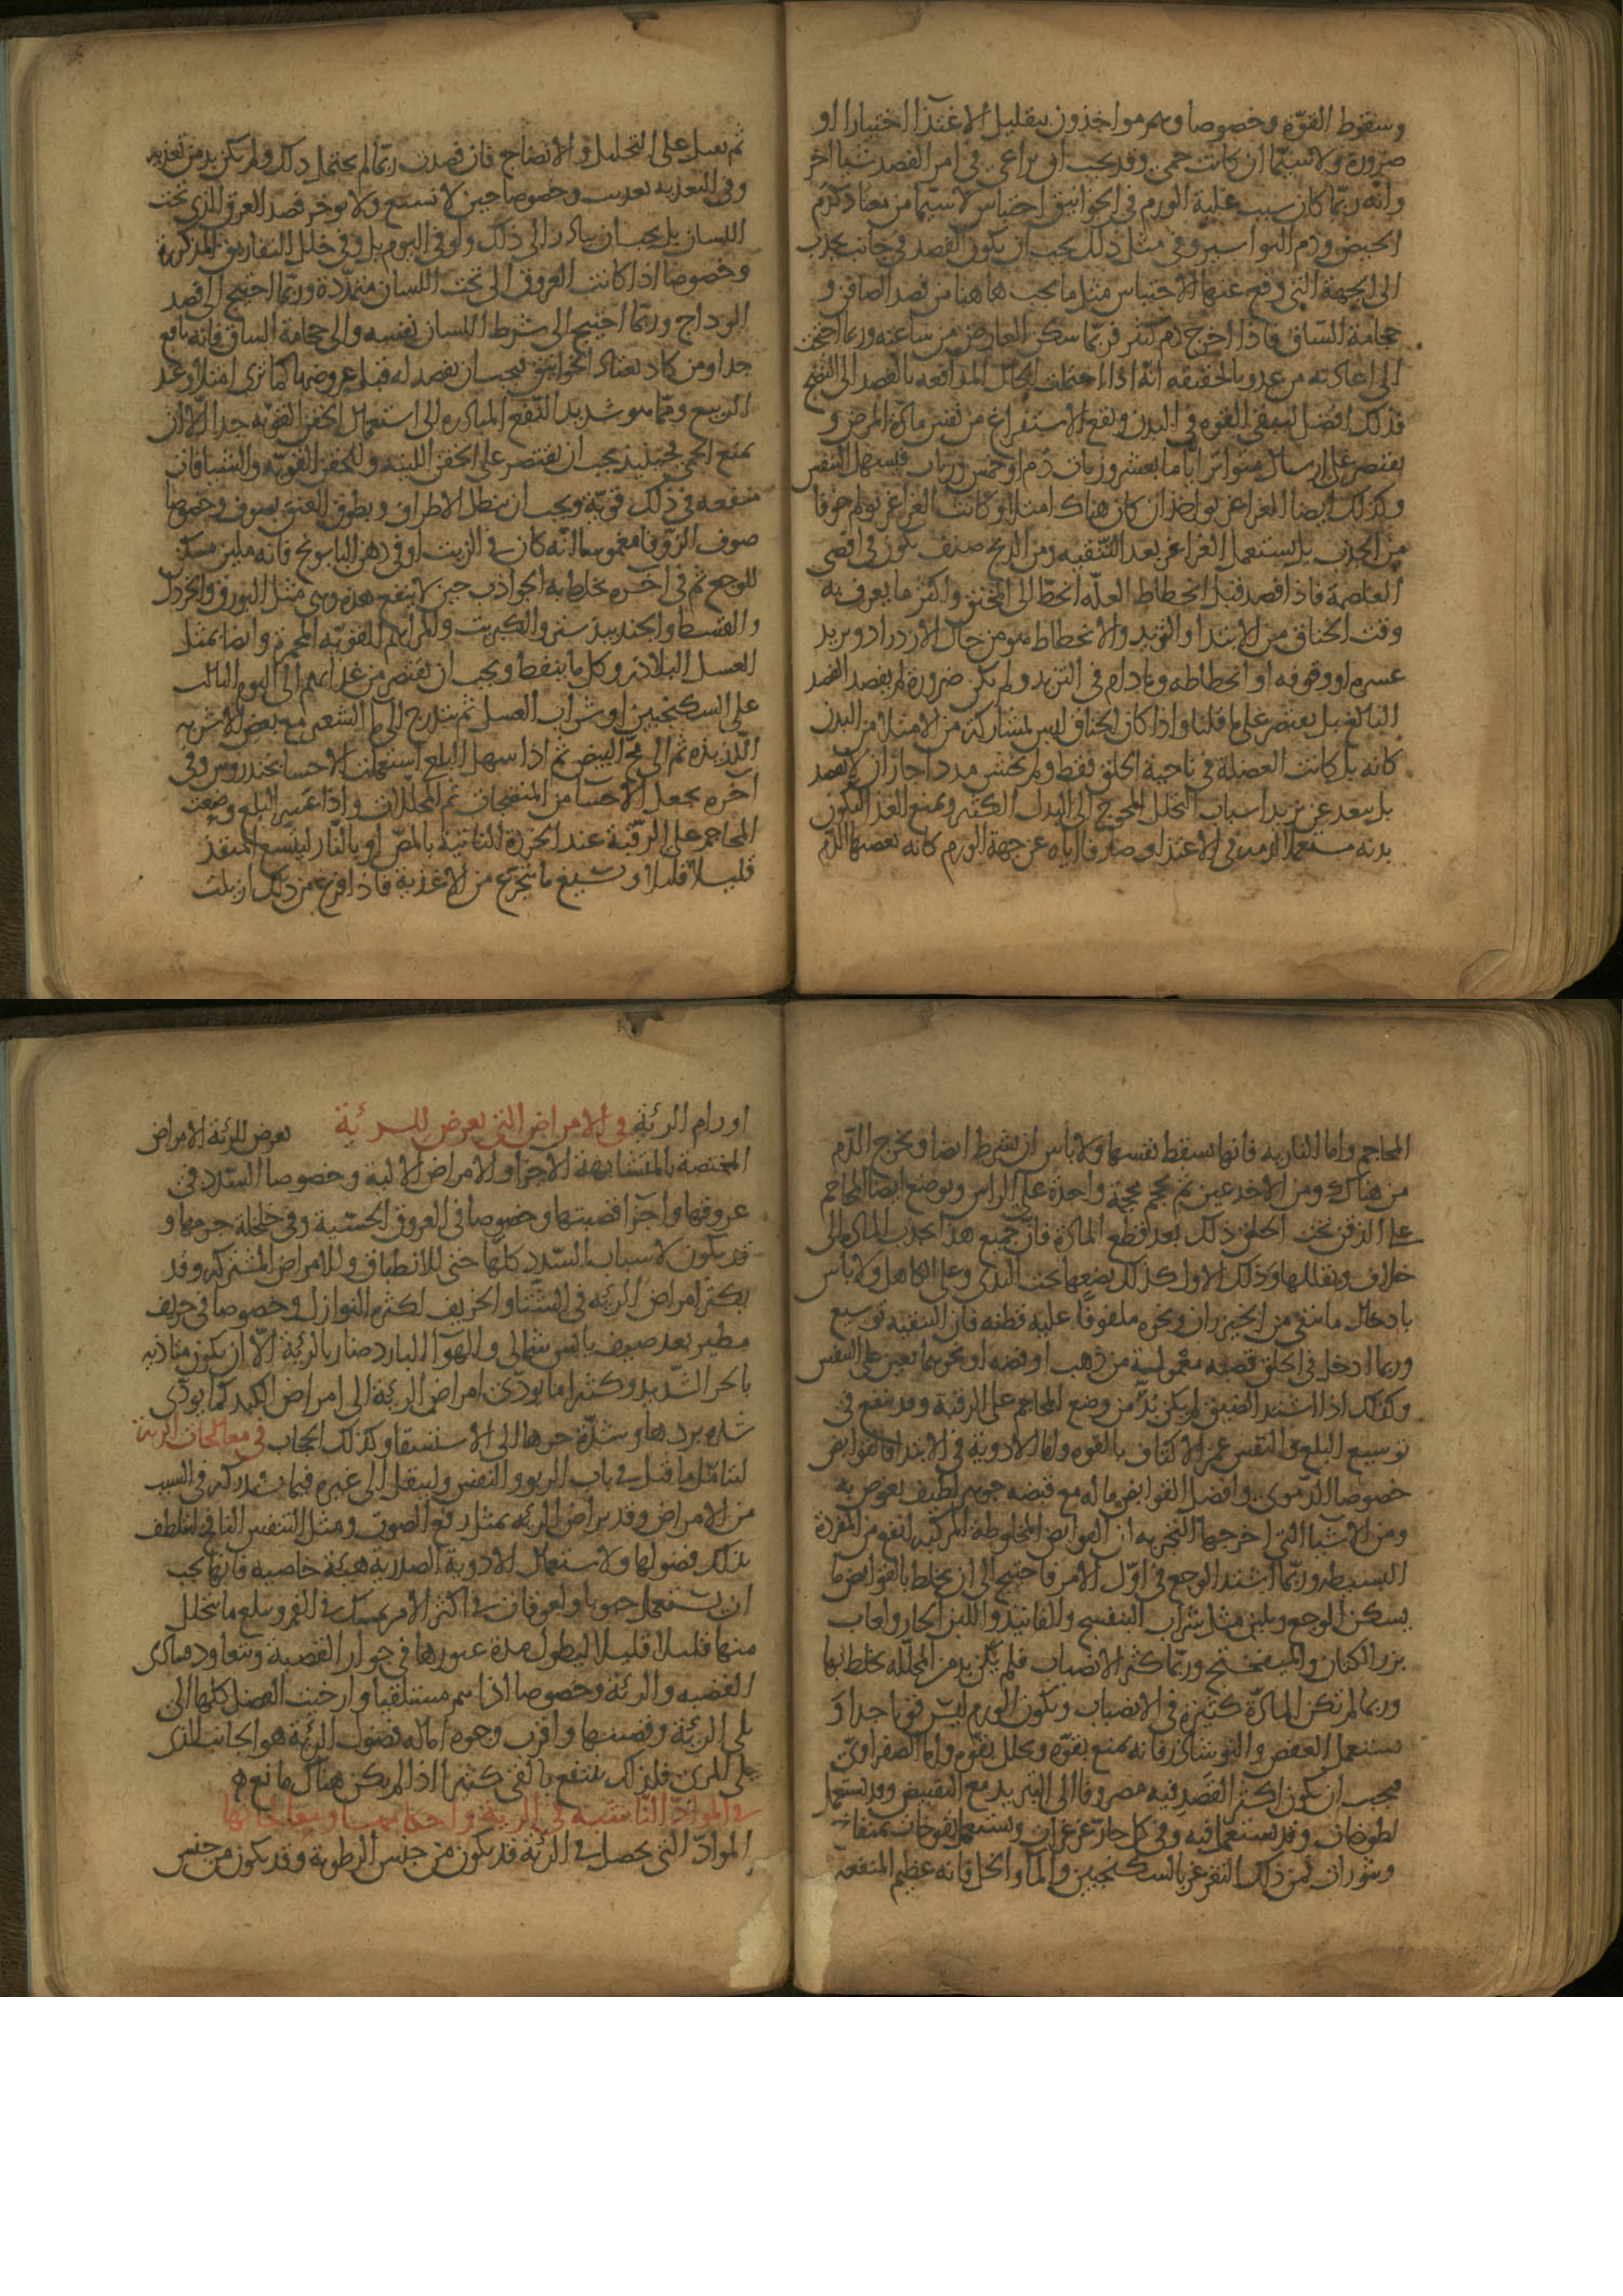 وسقوط القوّة وخصوصا وهم مواخذون بتقليل الاغتذآ اختيارا او
ضرورة ولا سيّما ان كانت حمى وقد يجب ان يراعى في امر الفصد شيا اخر
وانّه ربّما كان سبب غلبة الورم في الخوانيق احتباس لا سيّما من معتاد كدم
الحيض ودم البواسير وفي مثل ذلك يجب ان يكون الفصد في جانب يجذب
الى الجهة التي وقع عنها الاحتباس مثل ما يجب هاهنا من فصد الصافن و
حجامة السّاق فاذا اخرج دم كثير فربّما سكن العارض من ساعته وربما احتجت
الى اعادته من غد وبالحقيقه انّه اذا احتملت الحال المدافعه بالفصد الى النضج
فذلك افضل لتبقى القوّه في البدن ويقع الاستفراغ من نفس مادّة المرض و
يقتصر على ارسال متواتر اياما بعشر وزنات دم او خمس وزنات فيسهل التنفس
وكذلك ايضا الغراغر يواخذ ان كان هناك امتلا وكانت الغراغر تولم خوفا
من الجذب بل يستعمل الغراغر بعد التنقيه ومن الذبحه صنف يكون في اقصى
الغلصمة فاذا فصد قبل انحطاط العلّه انحطّ الى المخنق واكثر ما يعرف به
وقت الخناق من الابتدا والتزيد والانحطاط هو من حال الازدراد وتزيد
عسره او وقوفه او انحطاطه وما دام في التزيد ولم يكن ضرورة لم يفصد الفصد
البالغ بل يقتصر على ما قلنا واذا كان الخناق ليس لمشاركة من الامتلا من البدن
كانه بل كانت الفضلة في ناحية الحلق فقط ولم يخش مددا جاز ان لا يفصد
بل يبعد عن تزيد اسباب التحلل المحوج الى البدل الكثير ويمنع الغذا ليكون
بدنه مستعملا لدمه في الاغتذا وصارفا اياه عن جهة الورم كانه يغصبها الدّم
ثم تعمل على التحليل والانضاج فان فصدت ربّما لم يحتمل ذلك ولم يكن بد من تغذيه
وفي التغذيه تعذيب وخصوصا حين لا تسيغ ولا توخر فصد العرق الذي تحت
اللسان بل يجب ان يبادر الى ذلك ولو في اليوم بل وفي خلل التفاريق المذكورة
وخصوصا اذا كانت العروق الى تحت اللسان متمدّدة وربّما احتيج الى فصد
الوداج وربّما احتيج الى شرط اللسان نفسه والى حجامة الساق فانه نافع
جدا ومن كان يعتاد الخوانيق فيجب ان يفصد له قبل عروضها كما ترى امتلا وعند
الربيع وممّا هو شديد النّفع المبادره الى استعمال الحقن القويّه جدا الّا ان
تمنع الحمى فحينئذ يجب ان تقتصر على الحقن اللينه وللحقن القويّه والشيافات
منفعه في ذلك قويّة ويجب ان تنطل الاطراف ويطوق العنق بصوف وخصوصا
صوف الزّوفا مغموسا انّه كان في الزيت او في دهن البابونج فانه ملين مسكن
للوجع ثم في آخره يخلط به الجواذب حين لا ينفع هذه وهي مثل البورق والخردل
والقسط والجندبيدستر والكبريت والمراهم القويّه المحمره وايضا بمثل
العسل البلاذر وكل ما ينفط ويجب ان تقتصر من غذائهم الى اليوم الثالث
على السكنجبين او شراب العسل ثم يتدرج الى ماء الشعير مع بعض الاشربه
اللّذيذه ثم الى مح البيض ثم اذا سهل البلع استعملت الاحسا بخندروس وفي
آخره يجعل الاحسا من المنضجات ثم المحللات واذا عسر البلع وضعت
المحاجم على الرّقبة عند الخرزة الثانية بالمصّ او بالنّار ليتسع المنفذ
قليلا قليلا وتسيغ ما يتجرّع من الاغذية فاذا فرغ من ذلك ازيلت
المحاجم واما الناريه فانها تسقط بنفسها ولا بأس ان يشرط ايضا ويخرج الدّم
من هناك ومن الاخدعين ثم يحجم محجمة واحدة على الراس وتوضع ايضا المحاجم
على الذقن تحت الحلق ذلك بعد قطع المادّة فان جميع هذا يجذب المادّه الى
خلاف ويقللها وذلك الاول كذلك يضعها تحت الثدي وعلى الكاهل ولا بأس
بادخال ما ينقى من الخيزران ونحوه ملفوفًا عليه قطنه فان التنقيه توسيع
وربما ادخل في الحلق قصبه معموله من ذهب او فضه او نحوهما تعين على التنفس
وكذلك اذا اشتد الضيق لم يكن بدٌّ من وضع المحاجم على الرقبة وقد ينفع في
توسيع البلع والتنفس غمز الاكتاف بالقوه واما الادوية في الابتدا فالقوابض
خصوصا الدّموى وافضل القوابض ما له مع قبضه جوهر لطيف يغوص به
ومن الاشيا التي اخرجها التجربه ان القوابض المخلوطة المركبه انفع من المفردة
البسيطه وربّما اشتد الوجع في اوّل الامر فاحتيج الى ان يخلط بالقوابض ما
يسكن الوجع ويلين مثل شراب البنفسج والفانيذ واللبن الحار ولعاب
بزر الكتان والميفختج وربّما كثر الانصباب فلم يكن بد من المحلّله يخلط بها
وربما لم تكن المادّة كثيرة في الانصباب ويكون الورم ليس قويا جدا وَ
يستعمل العفص والنوشادر فانه يمنع بقوّه ويحلل بقوّه واما الصفراوىّ
فيجب ان يكون اكثر القصد فيه مصروفا الى التبريد مع التقبيض وقد يستعمل
لطوخات وقد يستعمل فيه وفي كل حارّ غرغرات ويستعمل نفوخات بمنفاخ
ونثورات فمن ذلك التغرغر بالسكنجبين والمآ والخل فانه عظيم المنفعه
اورام الرئة في الامراض التي تعرض للرئة تعرض للرئة الامراض
المختصة بالمتشابهة الاجزا والامراض الالية وخصوصا السّدد في
عروقها واجزآ قصبتها وخصوصا في العروق الخشنية وفي خلخلة جرمها و
قد يكون لاسباب السّدد كلها حتى للانطباق وللامراض المشتركه وقد
يكثر امراض الرئه في الشتا والخريف لكثره النوازل وخصوصا في خريف
مطير بعد صيف يابس شمالى والهوآ البارد ضار بالرئة الّا ان يكون متاذيه
بالحر الشّديد وكثيرا ما يودّى امراض الرئة الى امراض الكبد كما يودّى
شده بردها وشدّة حرها الى الاستسقا وكذلك الحجاب في معالجات الرئة
لنتامّل ما قيل في باب الربو والتنفس ولينقل الى غيره فيما يشدركه في السبب
من الامراض وقد يراض الرئه بمثل رفع الصوت ومثل التنفس النافخ ليلطف
بذلك فضولها ولاستعمال الادوية الصدرية هيئة خاصيه فانها يجب
ان تستعمل حبوبا ولعوقات في اكثر الامر يمسك في الفم ويبلع ما يتحلل
منها قليلا قليلا ليطول مدة عبورها في جوار القصبة ويتعاود فيتادى
القصبه والرئة وخصوصا اذا نام مستلقيا وارخيت العضل كلها التي
يلى الرئة وقصبتها واقرب وجوه امالة فضول الرئة هو الجانب الذي
يلى المرئ فلذلك ينتفع بالقئ كثيرا اذا لم يكن هناك مانع ه
في الموادّ الناشبة في الرئة واحكامها ومعالجاتها
الموادّ التي يحصل في الرئة قد يكون من جنس الرطوبة وقد يكون من جنس